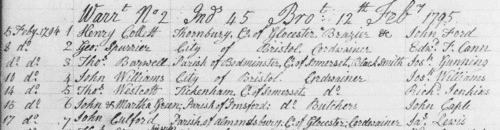 Warrt. No 2 Ind 45 Brot. 12th Feby 1795
5 Feby. 1794 1 Henry Collett Thornbury, C. of Glocester Brazier &c John Ford
8 do. 2 Geo: Spurrier City of Bristol Cordwainer Edwd. F. Cann
do do. 3 Thos. Barwell Parish of Bedminster, C. of Somerset, Black Smith Jos: Gunning
10 do. 4 John Williams City of Bristol. Cordwainer Jos: Williams
14 do 5 Thos. Westcott Tickenham, C. of Somerset do. Richd. Jenkins
16 do 6 John & Martha Green; Parish of Twnsford; do Butchers John Caple
17 do. 7 John Culford Parish of Almondsbury; C. of Glocester; Cordwainer Jas: Lewis